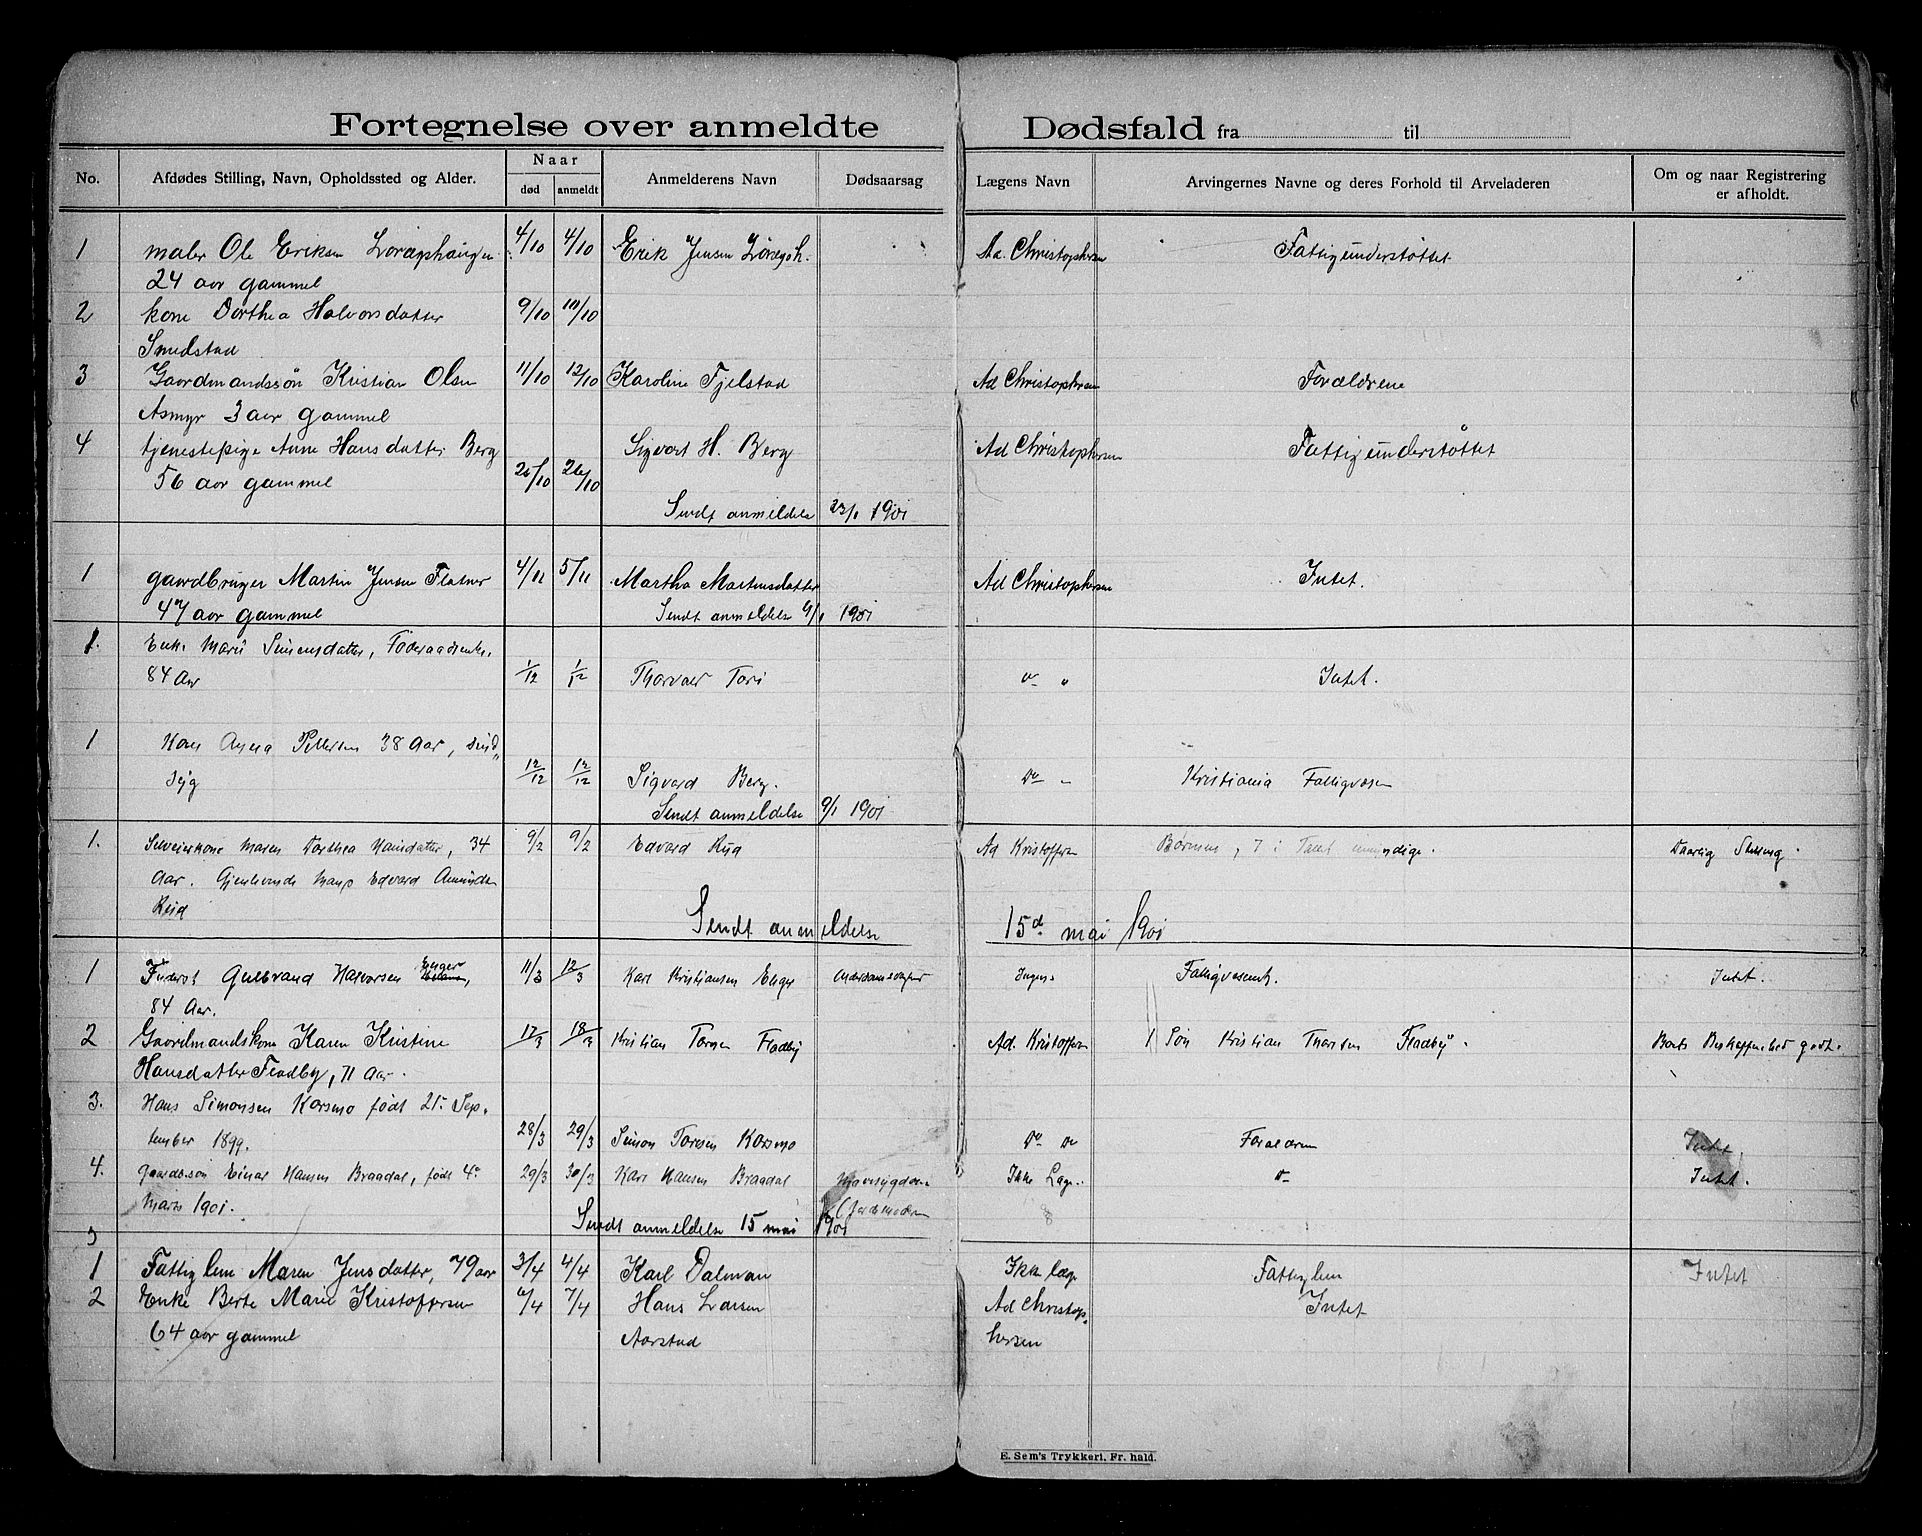 Fortegnelse over anmeldte Dødsfald fra til
No. Afdødes Stilling, Navn, Opholdssted og Alder. Naar død anmeldt Anmelderens Navn Dødsaarsag Lægens Navn Arvingernes Navne og deres Forhold til Arveladeren Om og naar Registrering er afholdt.
1 maler Ole Eriksen 4/10 4/10 Erik Jensen Ad. Christophersen Fattigunderstøttet
24 aar gammel
2 kone Dorthea Halvorsdatter 9/10 10/10
Smedstad
3 Gaardmandssøn Kristian Olsen 11/10 12/10 Karoline Fjelstad Ad Christophersen Forældrene
Asmyr 3 aar gammel
4 tjenestepige Anne Hansdatter Berg Sigvart H. Berg Ad Christophersen Fattigunderstøttet
56 aar gammel 25/10 26/10
Sendt anmeldelse 23/1 1901
1 gaardbruger Martin Jensen Flatner 4/11 5/11 Martha Martinsdatter Ad Christophersen Intet.
47 aar gammel Sendt anmeldelse 9/1 1901
1. Enke Marie Simensdatter, Føderaadsenke,
84 Aar 1/12 1/12 Thorvald Tori Do " Intet.
1 Kone Anna Pettersen 38 Aar, sind„
syg 12/12 12/12 Sigvard Berg. Do " Kristiania Fattigvæsen
Sendt anmeldelse 9/1 1901
1. Selveierkone Maren Dorthea Hansdatter, 34 9/2 9/2 Edvard Rud Ad Kristoffersen Børnene, 7 i Tallet umyndige. Daarlig Stilling.
Aar. Gjenlevende Mand Edvard Amundsen
Rud Sendt anmeldelse 15d mai 1901
1 Inderst Gulbrand Halvorsen Enger 11/3 12/3 Karl Kristiansen Enger Alderdomssvaghed Ingen Fattigvæsenet. Intet.
84 Aar.
2 Gaardmandskone Karen Kristine 17/3 18/3 Kristian Torsen Fladby Ad. Kristoffersen 1 Søn Kristian Thorsen Fladby. Boets Beskaffenhed godt.
Hansdatter Fladby, 71 Aar.
3. Hans Simonsen Korsmo født 21. Sep„
tember 1899. 28/3 29/3 Simon Toresen Korsmo Do Do Forældrene Intet.
4. Gaardb.søn Einar Hansen Braadal, født 4de 29/3 30/3 Karl Hansen Braadal Mavesygdom Ikke Læge. Do Intet.
Marts 1901. (Jordemoderen
Sendt anmeldelse 15 mai 1901
1 Fattiglem Maren Jensdatter, 79 aar 3/4 4/4 Karl Dalman Ikke læge Fattiglem Intet
2 Enke Berte Marie Kristofersen 6/4 7/4 Hans Larsen Ad Christop„ Intet
64 aar gammel Aarstad hersen
E. Sem's Trykkeri, Fr. hald.